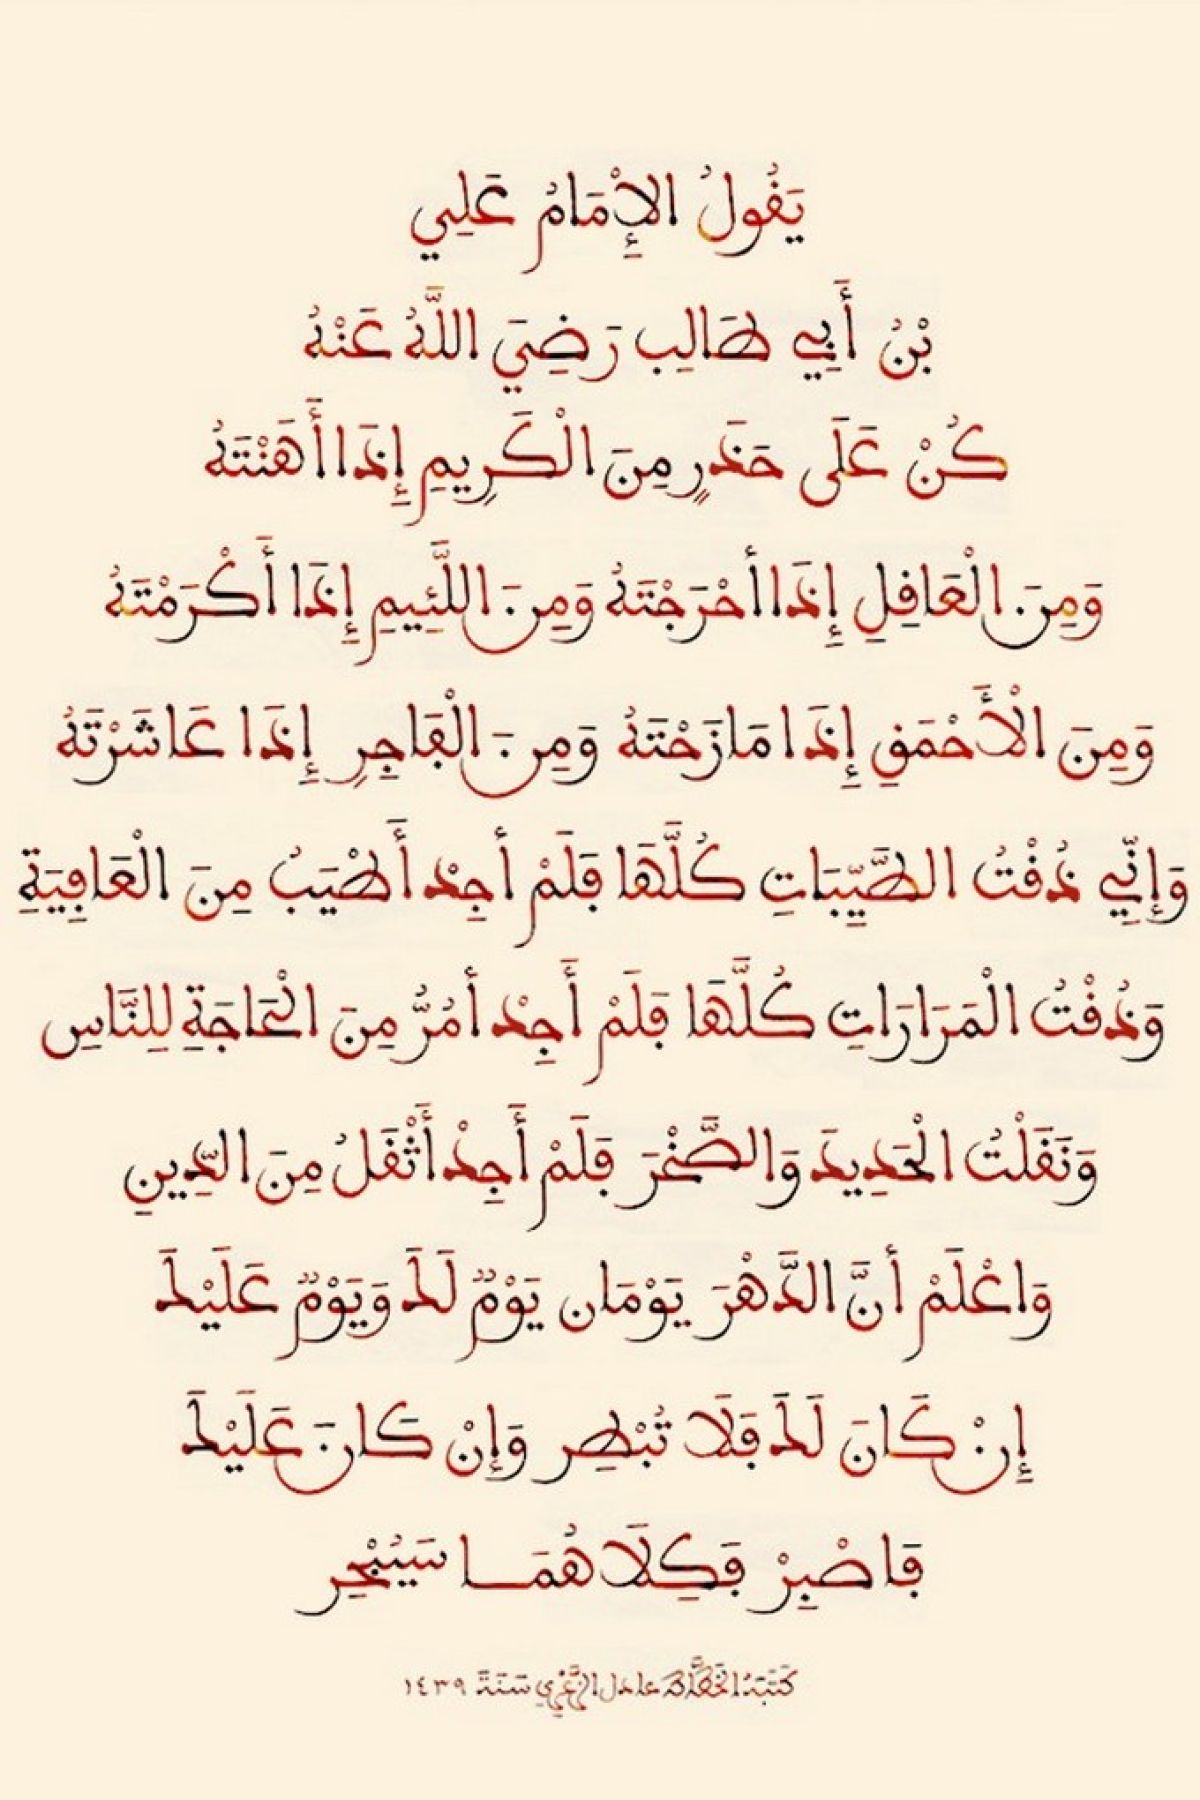 يَقُولُ الإِمَامُ عَلِي
بْنُ أَبِي طَالِب رَضِيَ اللَّهُ عَنْهُ
كُنْ عَلَى حَذَرٍ مِنَ الْكَرِيمِ إِذَا أَهَنْتَهُ
وَمِنَ الْعَاقِلِ إِذَا أحْرَجْتَهُ وَمِنَ اللَّئِيمِ إِذَا أَكْرَمْتَهُ
وَمِنَ الْأَحْمَقِ إِذَا مَازَحْتَهُ وَمِنَ الْفَاجِرِ إِذَا عَاشَرْتَهُ
وَإِنِّي ذُقْتُ الطَّيِّبَاتِ كُلَّهَا فَلَمْ أجِدْ أَطْيَبُ مِنَ الْعَافِيَةِ
وَذُقْتُ الْمَرَارَاتِ كُلَّهَا فَلَمْ أَجِدْ أمُرُّ مِنَ الْحَاجَةِ لِلنَّاسِ
وَنَقَلْتُ الْحَدِيدَ وَالصَّخْرَ فَلَمْ أَجِدْ أَثْقَلُ مِنَ الدِّينِ
وَاعْلَمْ أنَّ الدَّهْرَ يَوْمَان يَوْمٌ لَكَ وَيَوْمٌ عَلَيْكَ
إِنْ كَانَ لَكَ فَلَا تُبْطِر وَإِنْ كَانَ عَلَيْكَ
فَاصْبِرْ فَكِلَا هُمَا سَيُنْحَصِر
كَتَبَهُ الخَطَّاط عادل سَنَةَ ١٤٣٩